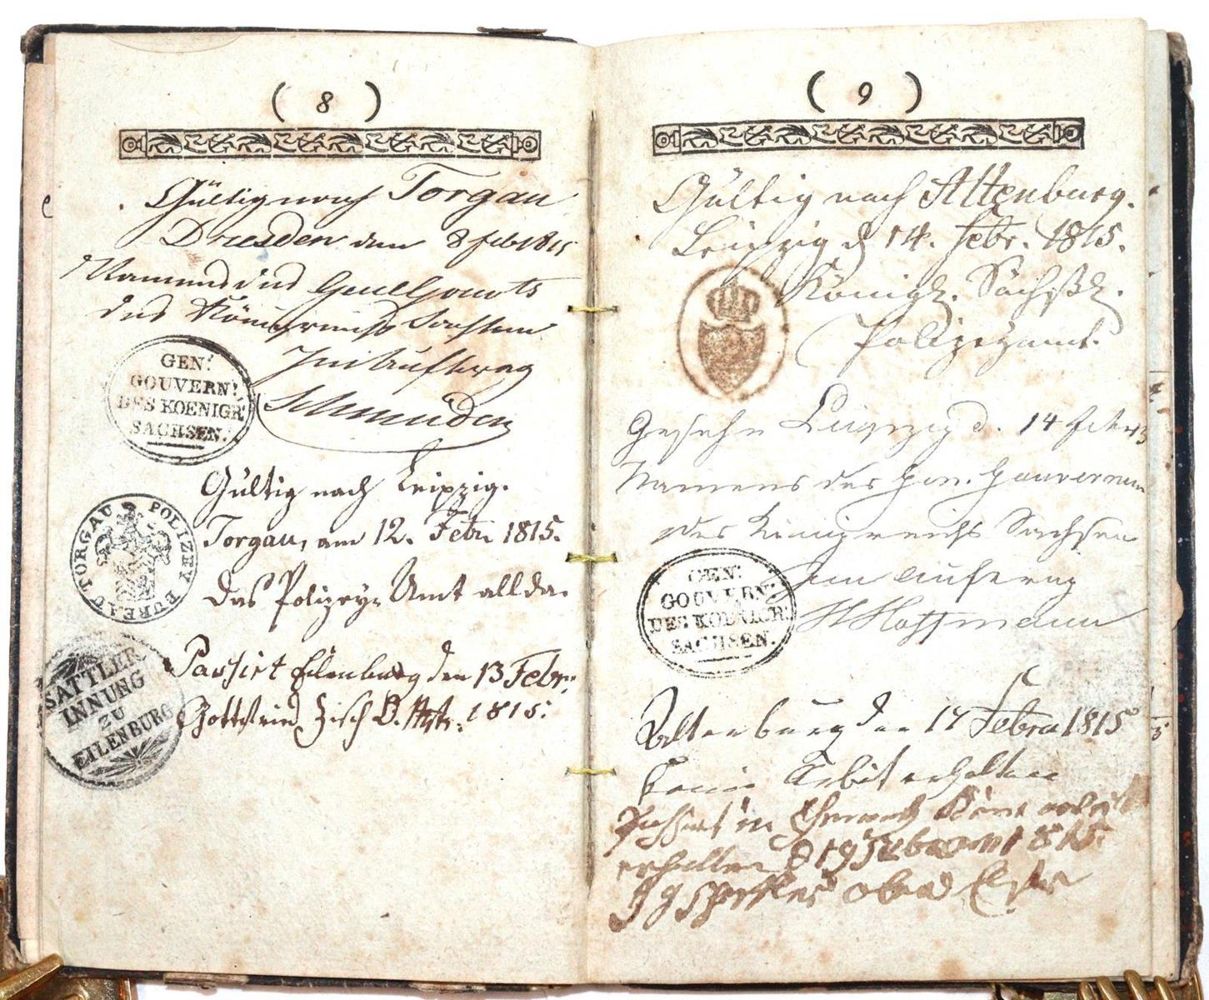 ( 8 )
Gültig nach Torgau
Dresden den 8 Feb 1815
Namens des
des Königreichs Sachsen
Im Auftrag
GEN:
GOUVERN:
DES KOENIGR:
SACHSEN.
Gültig nach Leipzig.
Torgau, am 12. Febr 1815.
Das Polizey-Amt allda.
TORGAU POLIZEY BUREAU
Passirt Eilenburg den 13 Febr:
Gottfried 1815:
SATTLER
INNUNG
ZU
EILENBURG
( 9 )
Gültig nach Altenburg.
Leipzig d 14. Febr. 1815.
Königl. Sächß.
Polizeyamt.
Gesehn Leipzig d. 14 Febr
Namens des Gen. Gouvernem
des Königreichs Sachsen
im Auftrag
Hoffmann
GEN:
GOUVERN:
DES KOENIGR:
SACHSEN.
Altenburg den 17 Febru 1815
Keine Arbeit erhalten
Passirt in Keine arbeit
erhalten d 19 Februar 1815